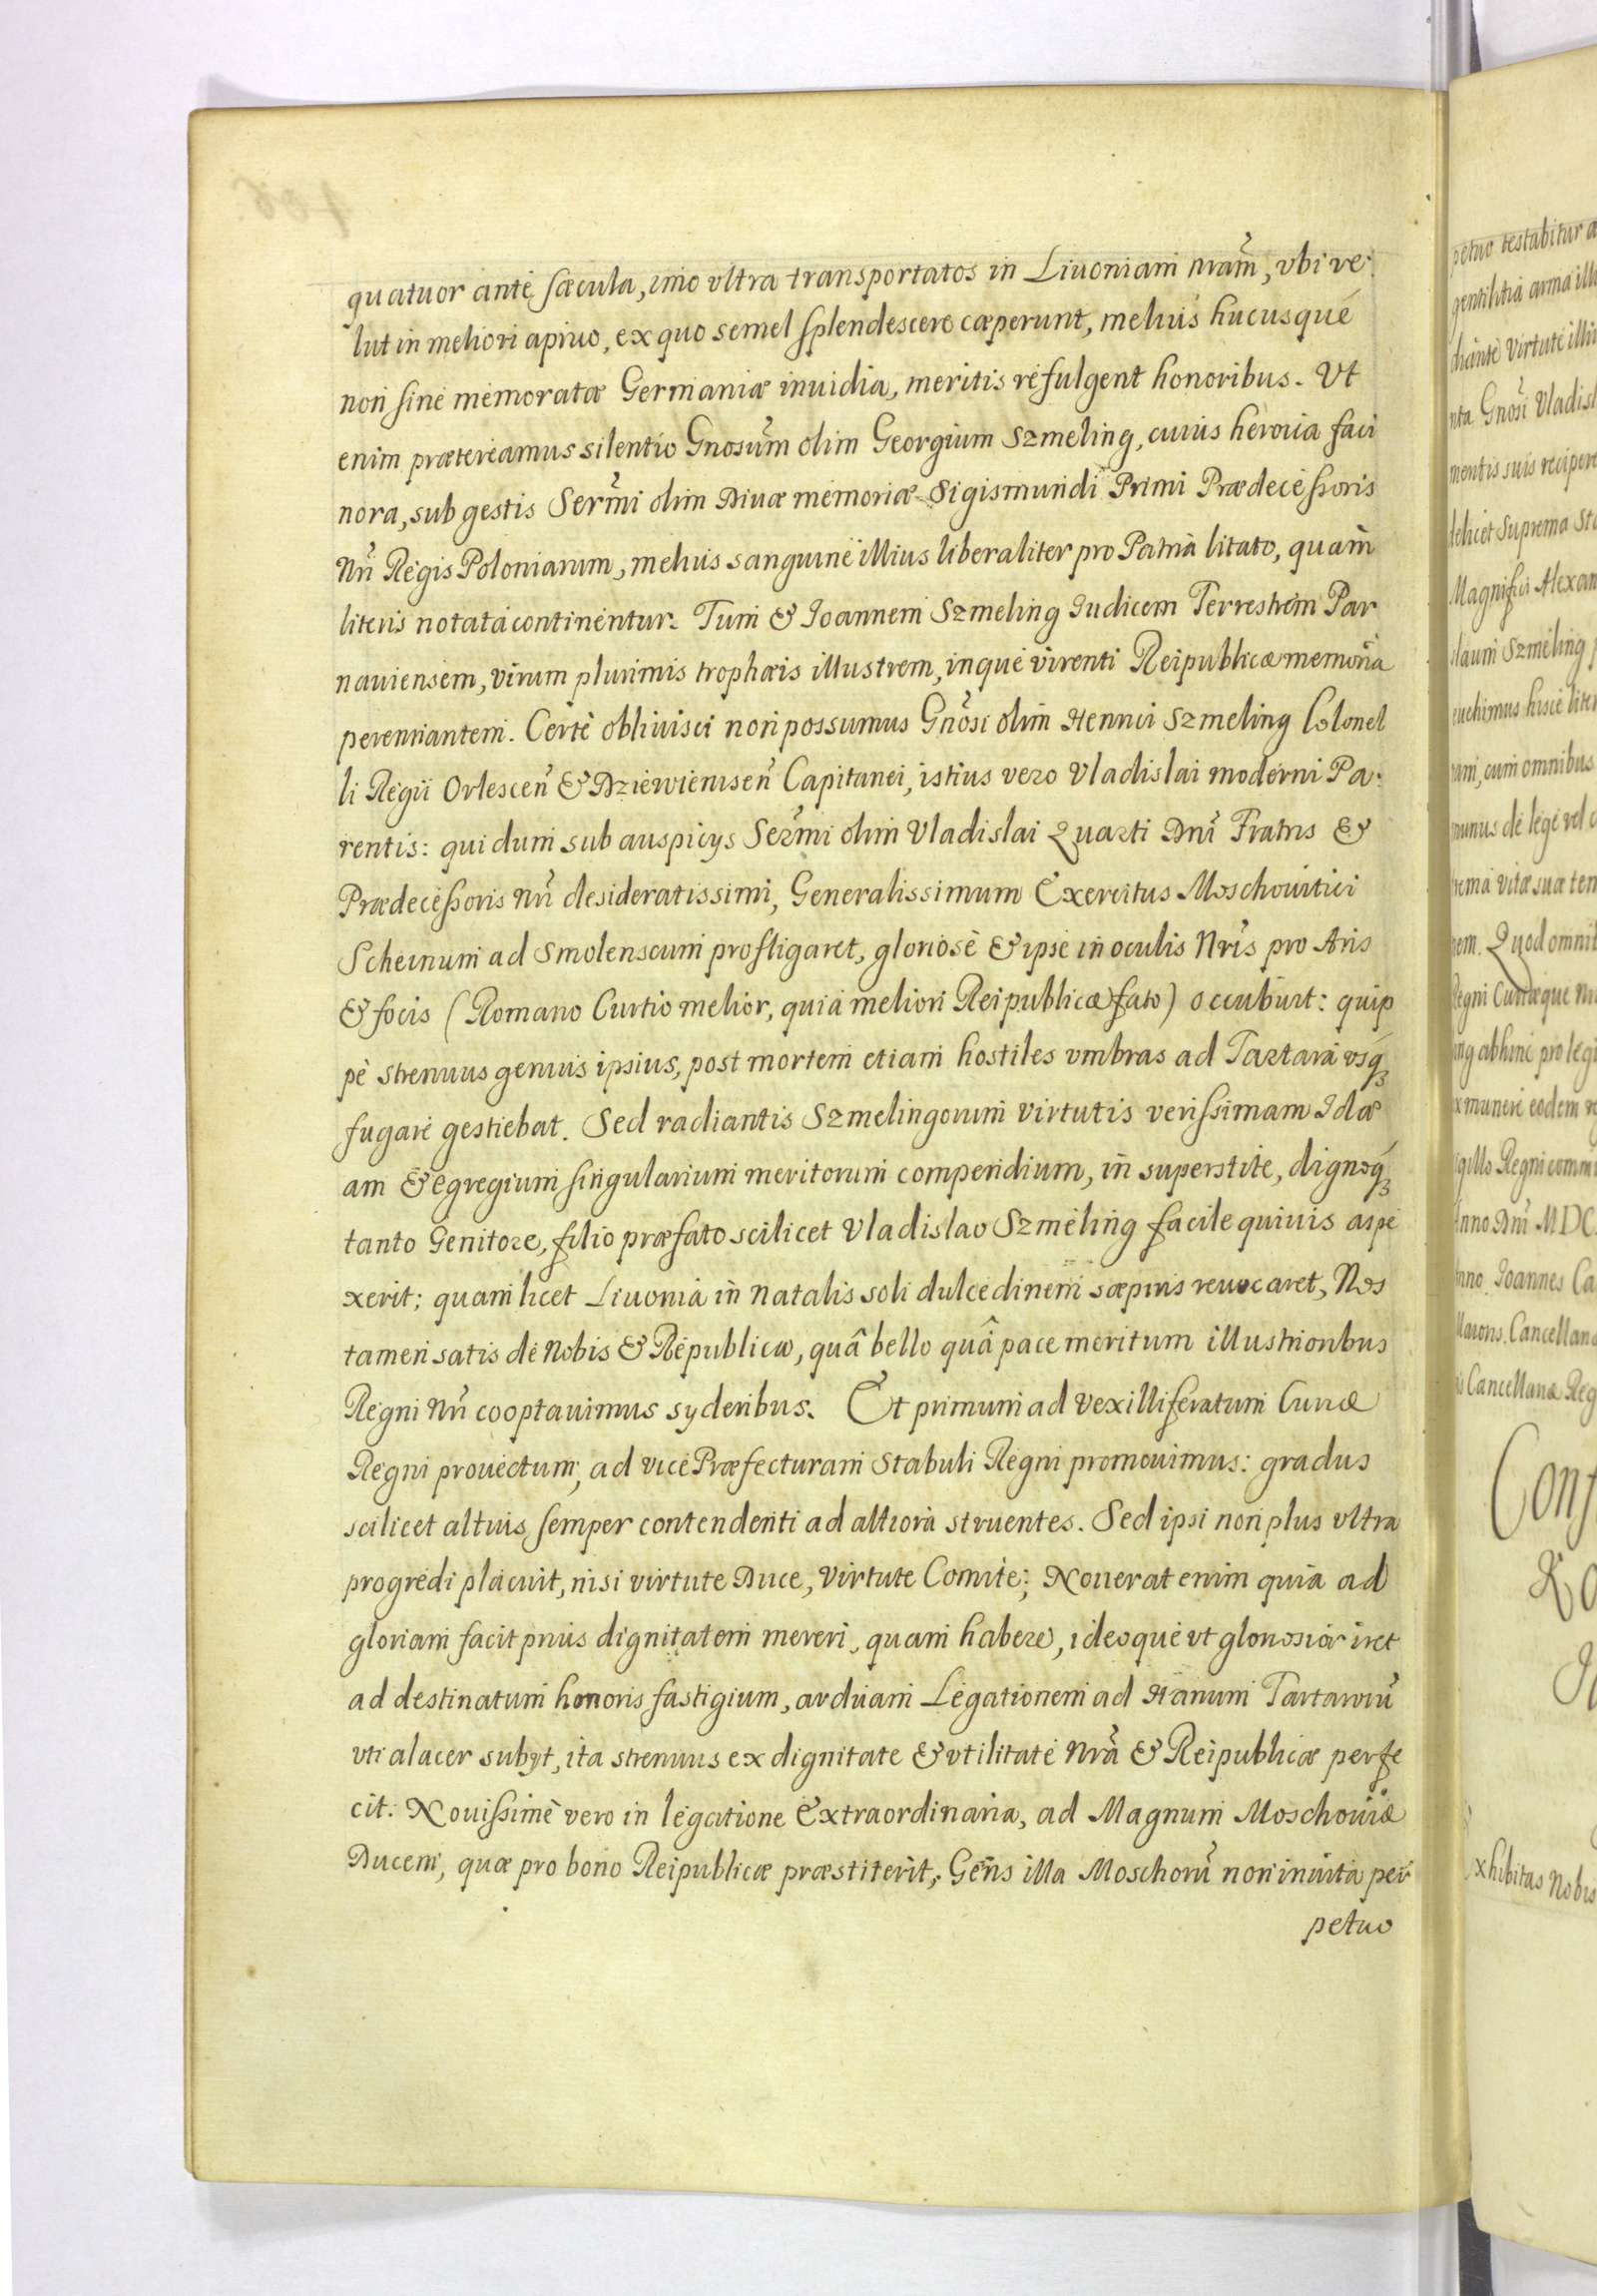 quatuor ante sæcula, imo vltra transportatos in Liuoniam nram̃, vbi ve-
lut in meliori apiuo, ex quo semel splendescere cæperunt, melius hucusque
non sine memoratæ Germaniæ inuidia, meritis refulgent honoribus. Vt
enim prætereamus silentio Gnosum̃ olim Georgium Szmeling, cuius heroica faci
nora, sub gestis Serm̃i olim Diuæ memoriæ Sigismundi Primi Prædecessoris
Nrĩ Regis Poloniarum, melius sanguine illius liberaliter pro Patria litato, quam
literis notata continentur. Tum & Joannem Szmeling Judicem Terrestrem Par
nauiensem, virum plurimis trophæis illustrem, inque virenti Reipublicæ memoria
perennantem. Certè obliuisci non possumus Gnõsi olim Henrici Szmeling Colonel
li Regii Orlescen̄ & Dziewienisen̄ Capitanei, istius vero Vladislai moderni Pa-
rentis: qui dum sub auspicys Serm̃i olim Vladislai Quarti Dnĩ Fratris &
Prædecessoris Nrĩ desideratissimi, Generalissimum Exercitus Moschouitici
Scheinum ad Smolenscum profligaret, gloriosè & ipse in oculis Nrĩs pro Aris
& focis (Romano Curtio melior, quia meliori Reipublicæ fato) occubuit: quip
pè strenuus genius ipsius, post mortem etiam hostiles vmbras ad Tartara vsq́ꝫ
fugare gestiebat. Sed radiantis Szmelingorum virtutis verissimam Idæ
am & egregium singularium meritorum compendium, in superstite, dignoq́ꝫ
tanto Genitore, filio præfato scilicet Vladislao Szmeling facile quiuis aspe
xerit; quam licet Liuonia in natalis soli dulcedinem sæpius reuocaret, Nos
tamen satis de Nobis & Republica, quâ bello quâ pace meritum illustrioribus
Regni Nrĩ cooptauimus syderibus. Et primum ad vexilliferatum Curiæ
Regni prouectum, ad vice Præfecturam Stabuli Regni promouimus: gradus
scilicet altius semper contendenti ad altiora struentes. Sed ipsi non plus vltra
progredi placuit, nisi virtute Duce, virtute Comite; Nouerat enim quia ad
gloriam facit prius dignitatem mereri, quam habere, ideoque vt gloriosior iret
ad destinatum honoris fastigium, arduam Legationem ad Hanum Tartarorũ
vti alacer subyt, ita strenuus ex dignitate & vtilitate Nrã & Reipublicæ perfe
cit. Nouissimè vero in legatione Extraordinaria, ad Magnum Moschouiæ
Ducem, quæ pro bono Reipublicæ præstiterit, Gens illa Moschorũ non inuita per
petuo